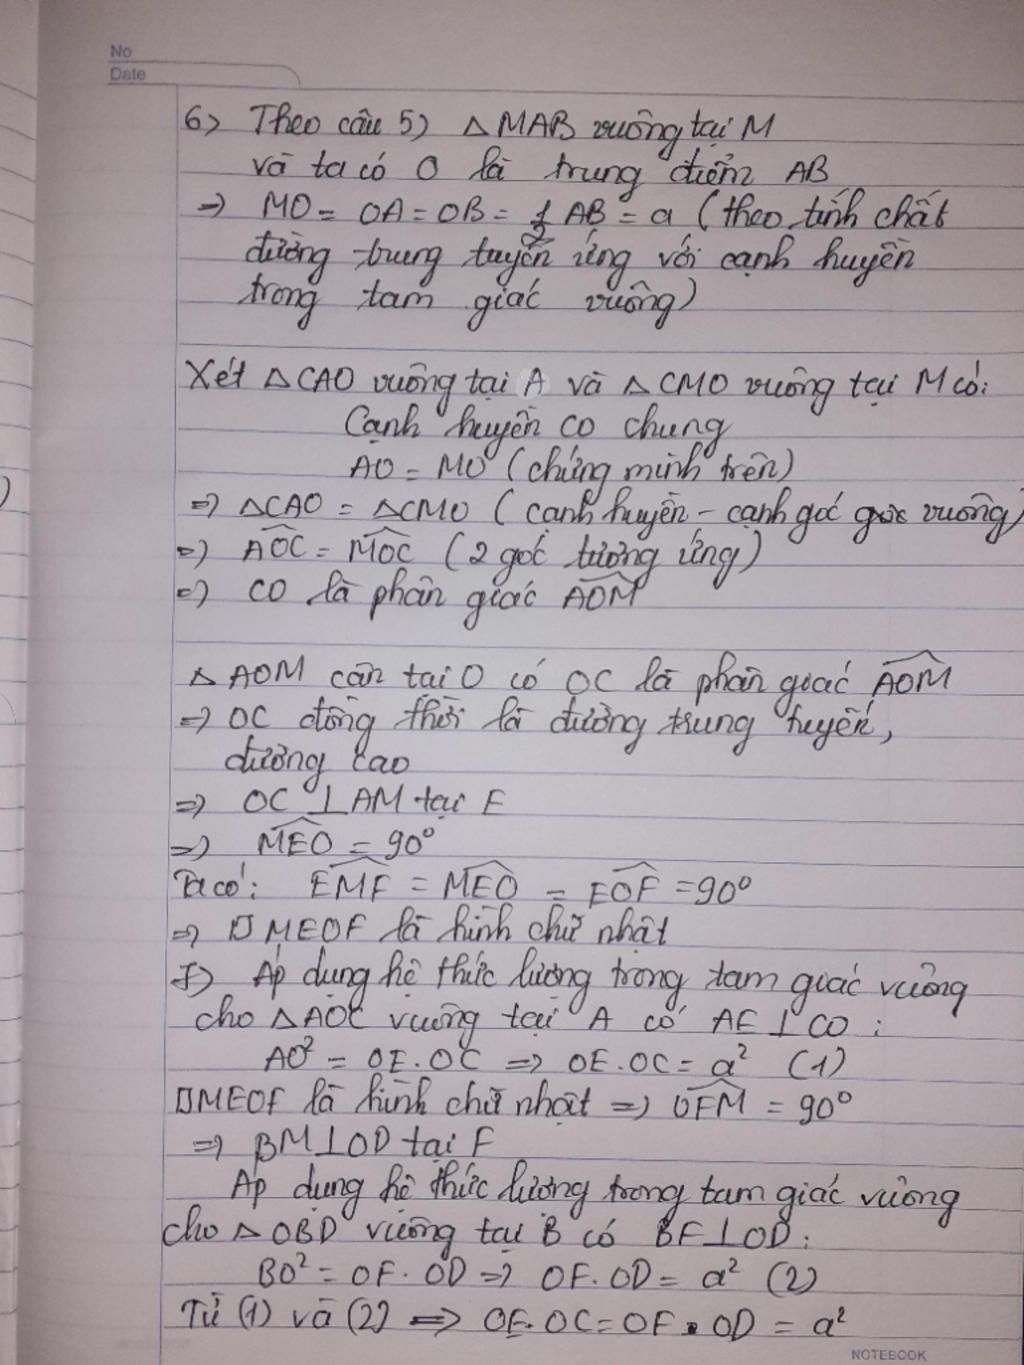 No
Date
6) Theo câu 5) △MAB vuông tại M
và ta có O là trung điểm AB
⇒ MO = OA = OB = 1/2 AB = a (theo tính chất
đường trung tuyến ứng với cạnh huyền
trong tam giác vuông)
Xét △CAO vuông tại A và △CMO vuông tại M có:
Cạnh huyền CO chung
AO = MO (chứng minh trên)
⇒ △CAO = △CMO (cạnh huyền - cạnh góc vuông)
⇒ \widehat{AOC} = \widehat{MOC} (2 góc tương ứng)
⇒ CO là phân giác \widehat{AOM}
△AOM cân tại O có OC là phân giác \widehat{AOM}
⇒ OC đồng thời là đường trung tuyến,
đường cao
⇒ OC ⊥ AM tại E
⇒ \widehat{MEO} = 90°
Ta có: \widehat{EMF} = \widehat{MEO} = \widehat{EOF} = 90°
⇒ □MEOF là hình chữ nhật
7) Áp dụng hệ thức lượng trong tam giác vuông
cho △AOC vuông tại A có AE ⊥ CO:
AO² = OE.OC ⇒ OE.OC = a² (1)
□MEOF là hình chữ nhật ⇒ \widehat{OFM} = 90°
⇒ BM ⊥ OD tại F
Áp dụng hệ thức lượng trong tam giác vuông
cho △OBD vuông tại B có BF ⊥ OD:
BO² = OF.OD ⇒ OF.OD = a² (2)
Từ (1) và (2) ⇒ OE.OC = OF.OD = a²
NOTEBOOK